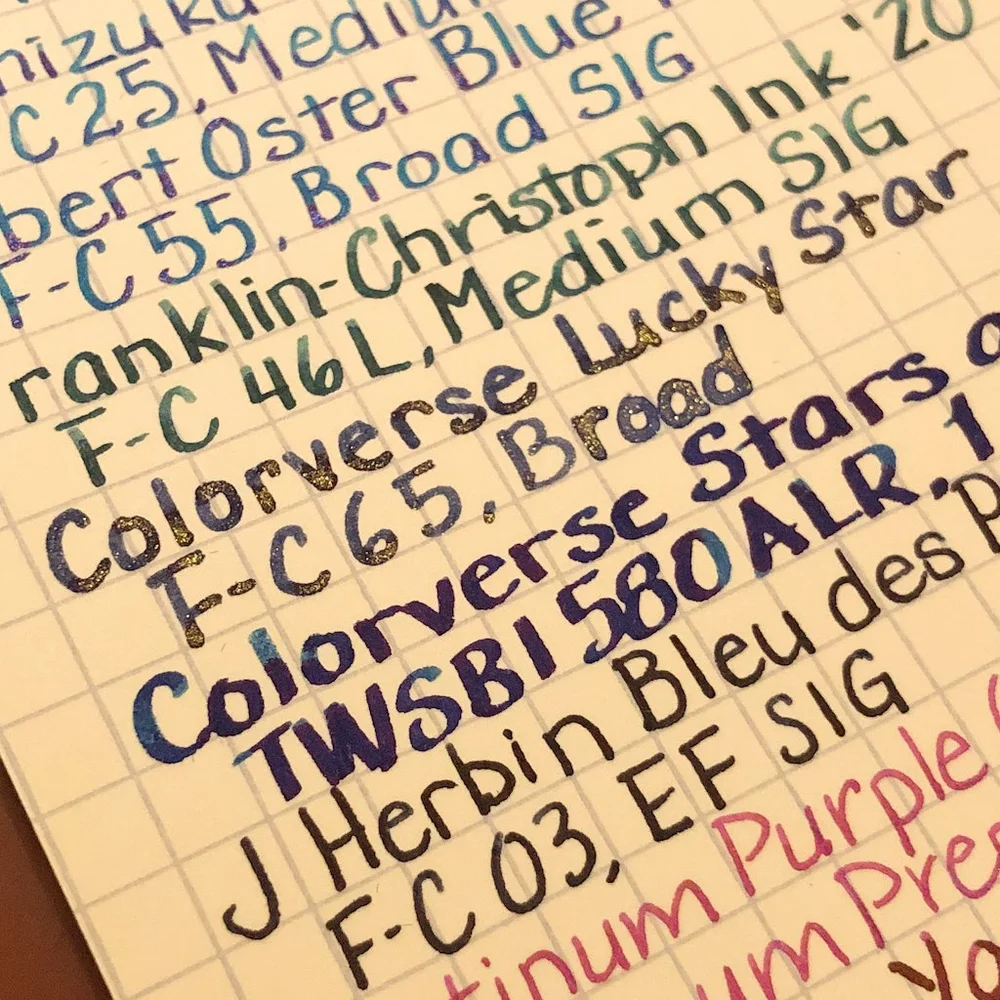 mizuku
C 25, Medium
bert Oster Blue
F-C 55, Broad SIG
ranklin-Christoph Ink '20
F-C 46L, Medium SIG
Colorverse Lucky Star
F-C 65, Broad
Colorverse Stars
TWSBI 580 ALR, 1
J Herbin Bleu des P
F-C 03, EF SIG
tinum Purple
um Pre
Yo